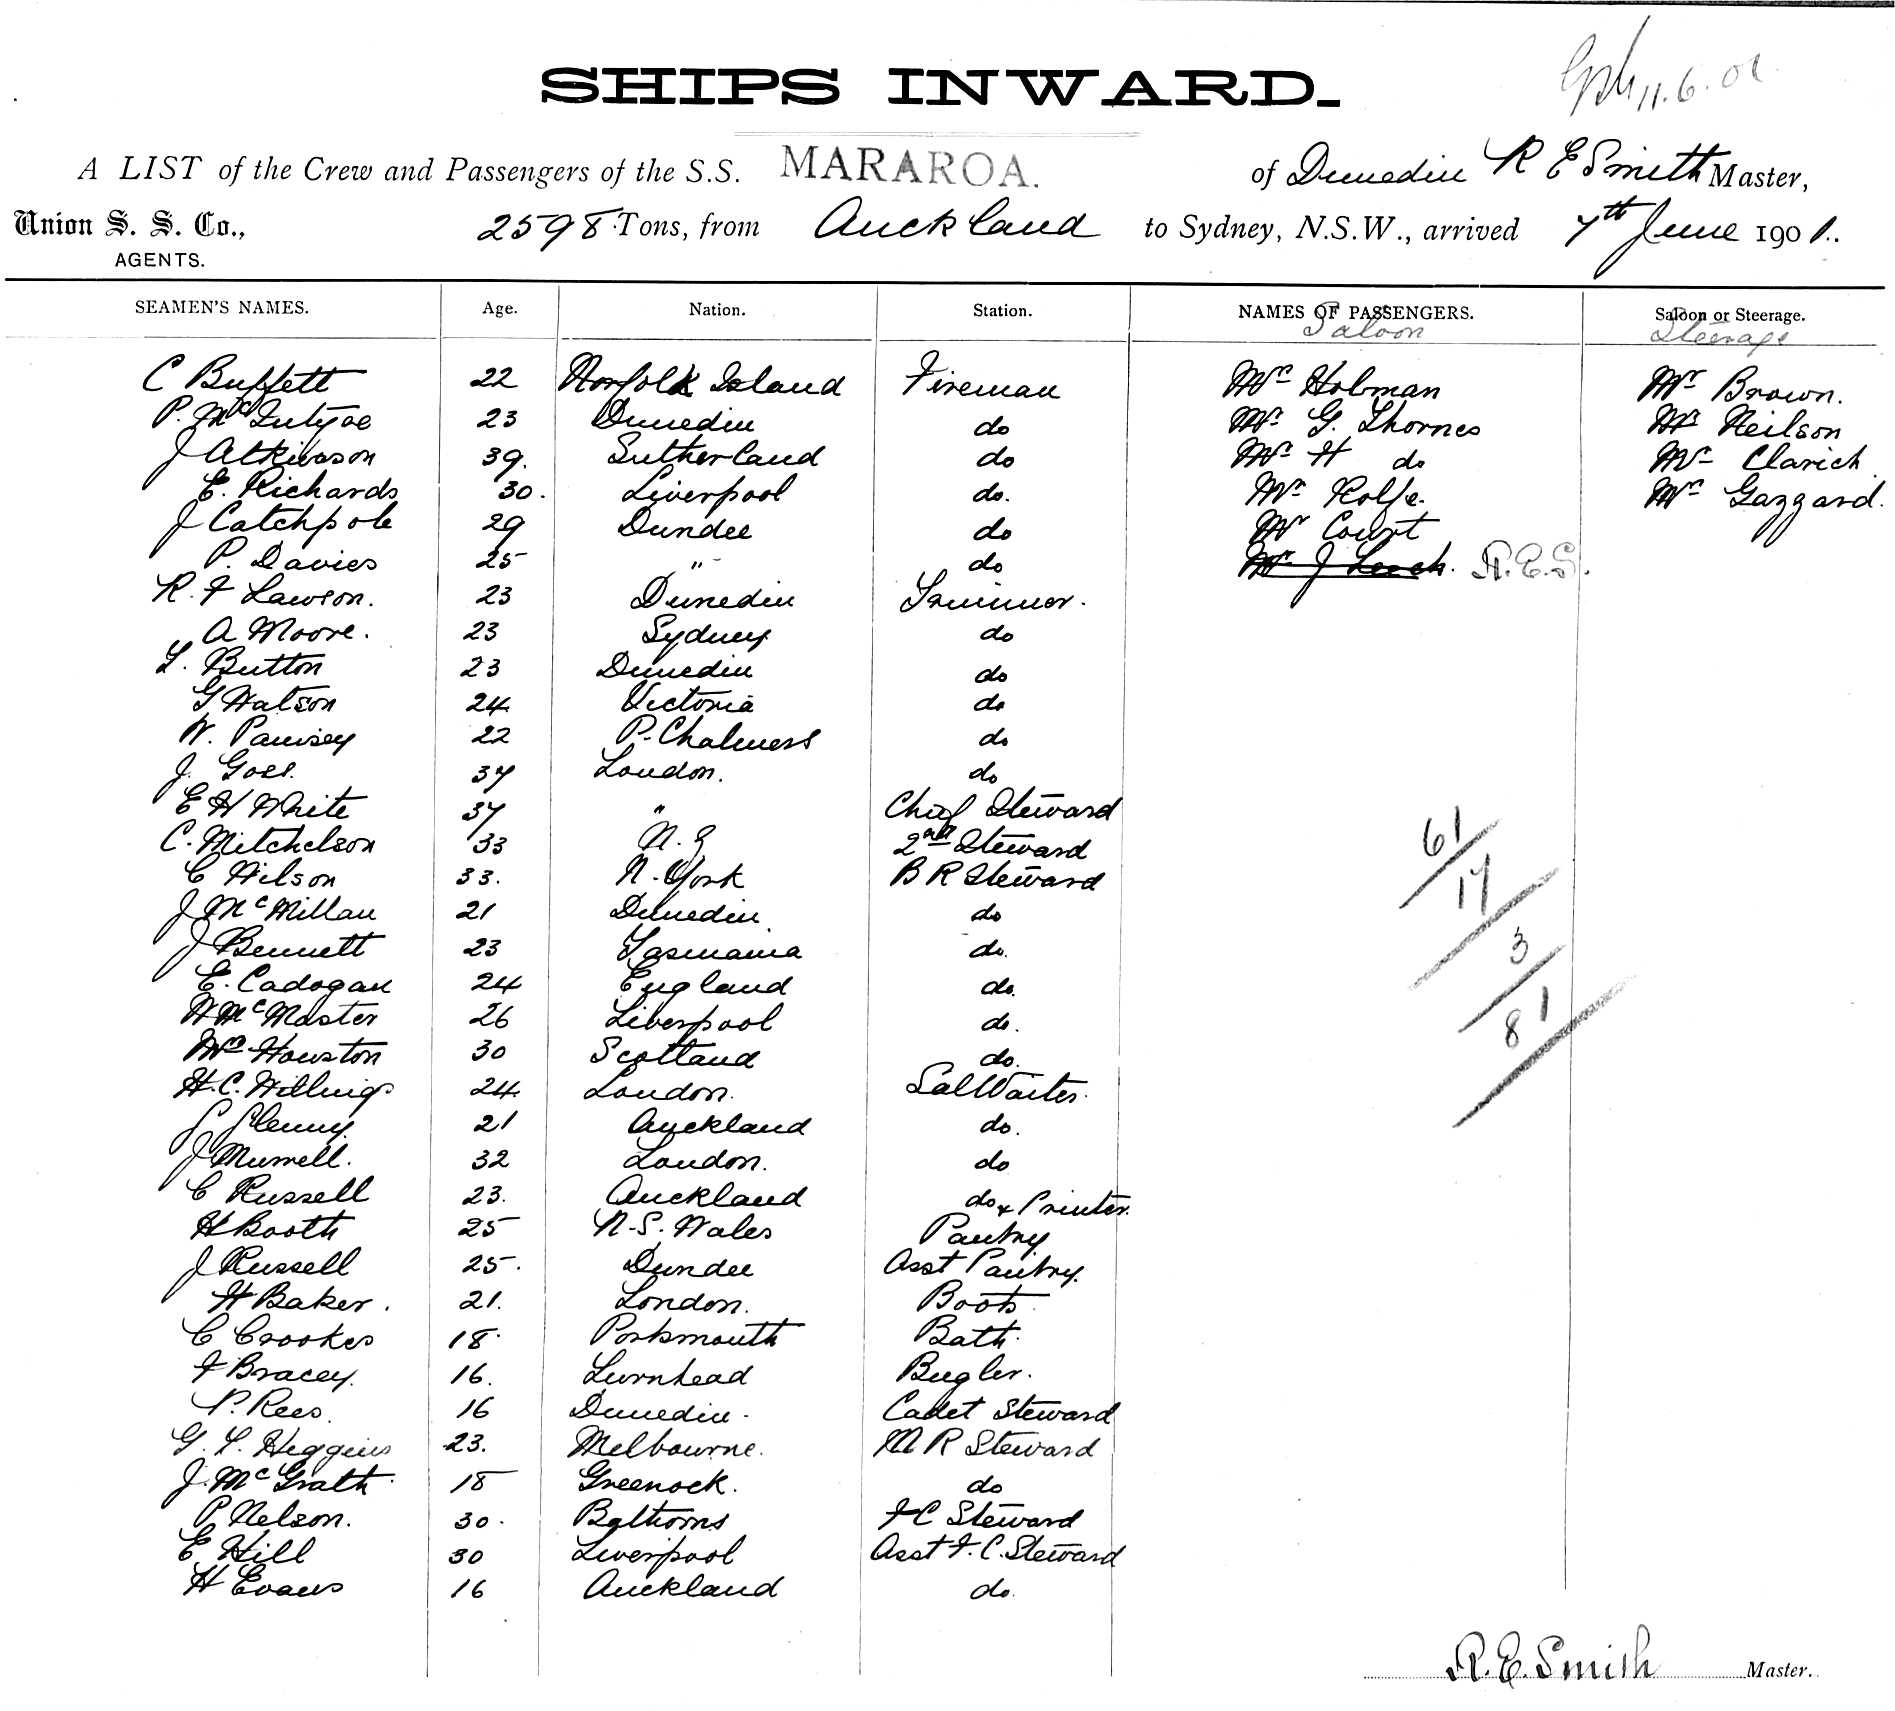 SHIPS INWARD.
11.6.01
A LIST of the Crew and Passengers of the S.S. MARAROA. of Dunedin R E Smith Master,
Union S. S. Co., 2598 Tons, from Auckland to Sydney, N.S.W., arrived 7th June 1901.
AGENTS.
SEAMEN'S NAMES. Age. Nation. Station. NAMES OF PASSENGERS. Saloon or Steerage.
Saloon Steerage
C Buffett 22 Norfolk Island Fireman Mr Holman Mr Brown.
P. McIntyre 23 Dunedin do Mr G. Thornes Mr Neilson
J Atkinson 39. Sutherland do Mr H do Mr Clarich
E. Richards 30. Liverpool do. Mr Rolfe. Mr Gazzard.
J Catchpole 29 Dundee do Mr Court
P. Davies 25 " do Mr J Leech. R.E.S.
R. F Lawson. 23 Dunedin Trimmer.
A Moore. 23 Sydney do
L. Button 23 Dunedin do
G Watson 24 Victoria do
W. 22 P. Chalmers do
J. Goss. 37 London. do
E H White 37 " Chief Steward
C. Mitchelson 33 N.Z 2nd Steward
C Wilson 33. N. York B R Steward
J McMillan 21 Dunedin do
J Bennett 23 Tasmania do.
E. Cadogan 24 England do.
W McMaster 26 Liverpool do.
Wm Houston 30 Scotland do.
H. C. Willings 24 London. Sal Waiter.
S Glenny. 21 Auckland do.
J Murrell. 32 London. do
C Russell 23. Auckland do & Printer.
H Booth 25 N. S. Wales Pantry
J Russell 25. Dundee Asst Pantry.
H Baker. 21. London. Boots
C Crookes 18. Portsmouth Bath.
F Bracey. 16. Bugler.
P. Rees. 16 Dunedin. Cadet Steward
G. L. Higgins 23. Melbourne. M R Steward
J. McGrath 18 Greenock. do
P Nelson. 30. F C Steward
E Hill 30 Liverpool Asst F. C. Steward
H Evans 16 Auckland do.
61
17
3
81
R. E. Smith Master.